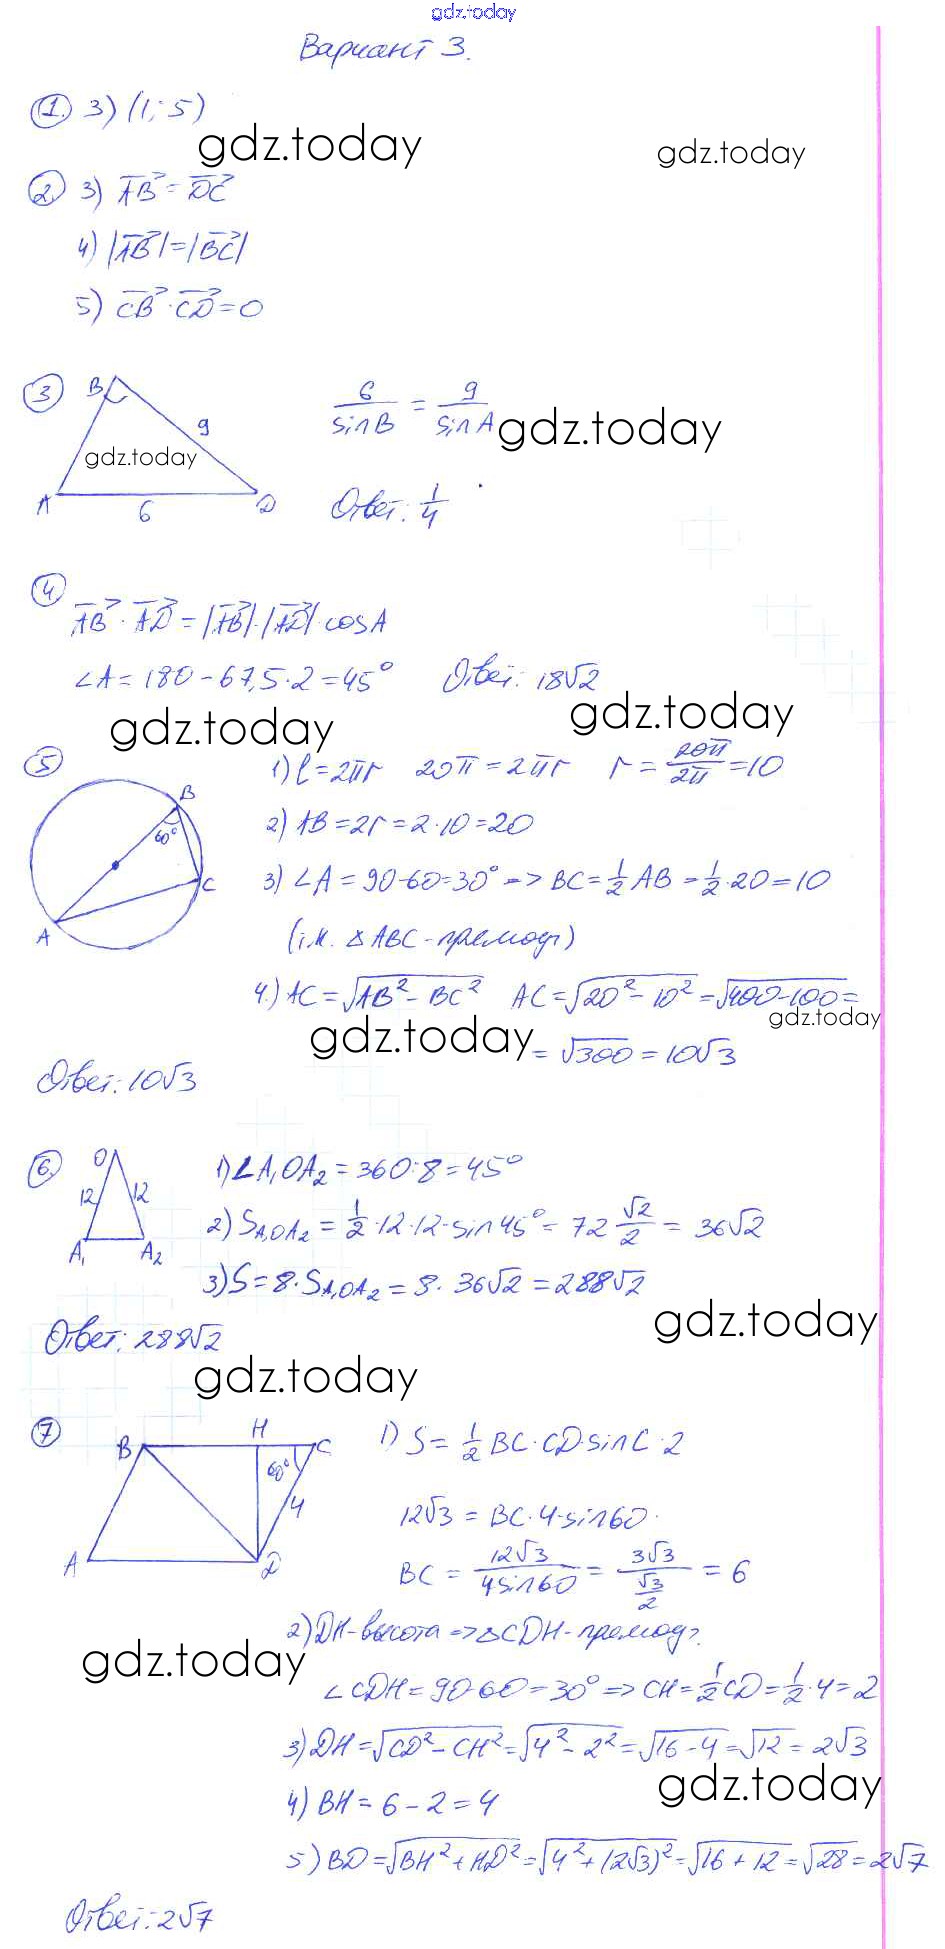 gdz.today
Вариант 3.
1. 3) (1; 5)
gdz.today gdz.today
2. 3) AB⃗ = DC⃗
4) |AB⃗| = |BC⃗|
5) CB⃗ · CD⃗ = 0
3 B 9 A 6 D
6/sinB = 9/sinA
gdz.today
gdz.today
Ответ: 1/4
4
AB⃗ · AD⃗ = |AB⃗| · |AD⃗| · cosA
∠A = 180 - 67,5 · 2 = 45° Ответ: 18√2
gdz.today gdz.today
5 1) l = 2πr 20π = 2πr r = 20π/2π = 10
B 60° C A
2) AB = 2r = 2 · 10 = 20
3) ∠A = 90-60=30° => BC = 1/2 AB = 1/2 · 20 = 10
(т.к. △ABC - прямоуг)
4.) AC = √(AB² - BC²) AC = √(20² - 10²) = √(400-100) =
gdz.today
gdz.today
= √300 = 10√3
Ответ: 10√3
6 O 12 12 A₁ A₂
1) ∠A₁OA₂ = 360 : 8 = 45°
2) S A₁OA₂ = 1/2 · 12 · 12 · sin45° = 72 √2/2 = 36√2
3) S = 8 · S A₁OA₂ = 8 · 36√2 = 288√2
gdz.today
Ответ: 288√2
gdz.today
7 B H C 60° 4 A D
1) S = 1/2 BC · CD · sinC · 2
12√3 = BC · 4 · sin60
BC = 12√3/4sin60 = 3√3/(√3/2) = 6
2) DH - высота => △CDH - прямоуг.
gdz.today
∠CDH = 90-60 = 30° => CH = 1/2 CD = 1/2 · 4 = 2
3) DH = √(CD² - CH²) = √(4² - 2²) = √(16-4) = √12 = 2√3
gdz.today
4) BH = 6 - 2 = 4
5) BD = √(BH² + HD²) = √(4² + (2√3)²) = √(16 + 12) = √28 = 2√7
Ответ: 2√7